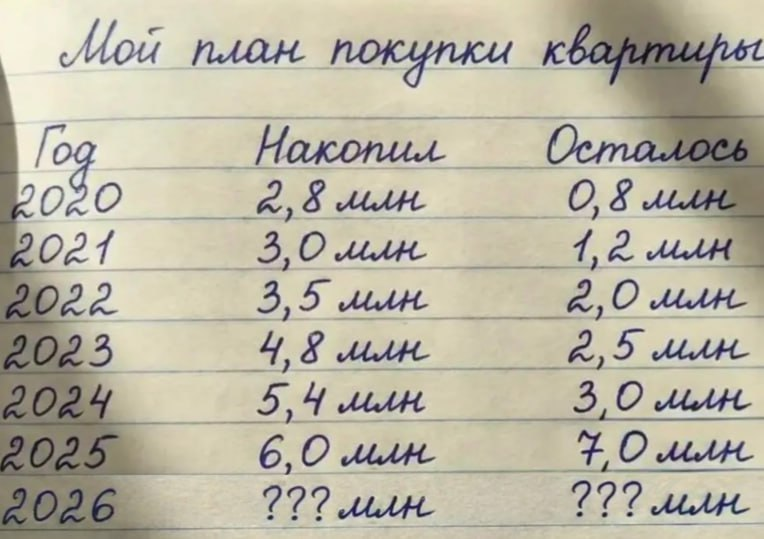 Мой план покупки квартиры
Год Накопил Осталось
2020 2,8 млн 0,8 млн
2021 3,0 млн 1,2 млн
2022 3,5 млн 2,0 млн
2023 4,8 млн 2,5 млн
2024 5,4 млн 3,0 млн
2025 6,0 млн 7,0 млн
2026 ??? млн ??? млн